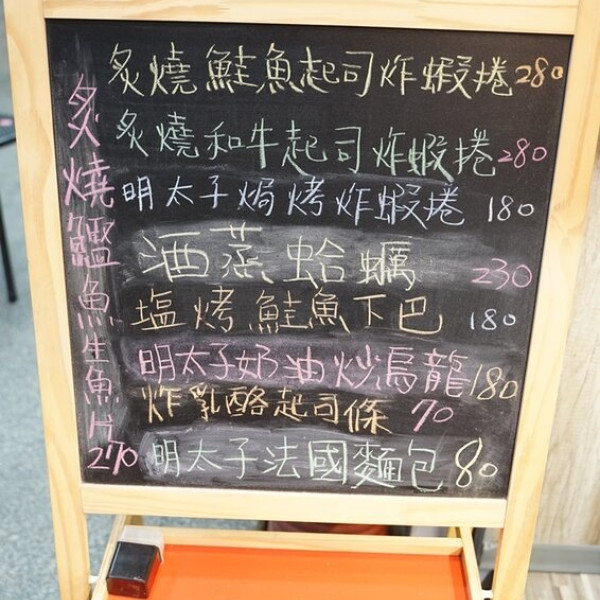 炙燒鮭魚起司炸蝦捲280
炙燒和牛起司炸蝦捲280
明太子焗烤炸蝦捲 180
酒蒸蛤蠣 230
塩烤鮭魚下巴 180
明太子奶油炒烏龍180
炸乳酪起司條 70
明太子法國麵包80
炙燒鰹魚生魚片270